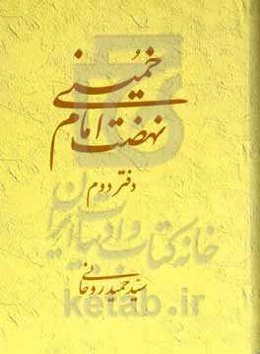 نهضت امام خمینی
دفتر دوم
خانه کتاب و ادبیات ایران
سید حمید روحانی
ketab.ir